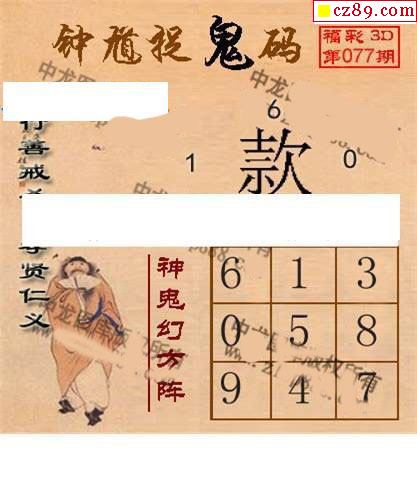 cz89.com
钟馗捉鬼码
福彩3D
第077期
6
款
1 0
行善戒
尊贤仁义
神鬼幻方阵
6 1 3
0 5 8
9 4 7